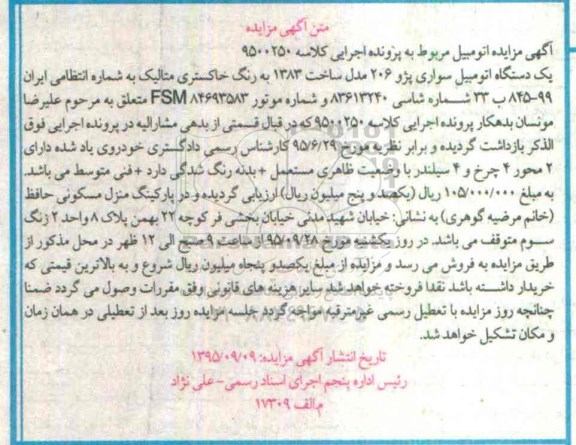 متن آگهی مزایده
آگهی مزایده اتومبیل مربوط به پرونده اجرایی کلاسه ۹۵۰۰۲۵۰
یک دستگاه اتومبیل سواری پژو ۲۰۶ مدل ساخت ۱۳۸۳ به رنگ خاکستری متالیک به شماره انتظامی ایران
۹۹-۸۴۵ ب ۳۳ شماره شاسی ۸۳۶۱۳۲۴۰ و شماره موتور FSM ۸۴۶۹۳۵۸۳ متعلق به مرحوم علیرضا
مونسان بدهکار پرونده اجرایی کلاسه ۹۵۰۰۲۵۰ که در قبال قسمتی از بدهی مشارالیه در پرونده اجرایی فوق
الذکر بازداشت گردیده و برابر نظریه مورخ ۹۵/۶/۲۹ کارشناس رسمی دادگستری خودروی یاد شده دارای
۲ محور ۴ چرخ و ۴ سیلندر با وضعیت ظاهری مستعمل + بدنه رنگ شدگی دارد + فنی متوسط می باشد.
به مبلغ ۱۰۵/۰۰۰/۰۰۰ ریال (یکصد و پنج میلیون ریال) ارزیابی گردیده و در پارکینگ منزل مسکونی حافظ
(خانم مرضیه گوهری) به نشانی: خیابان شهید مدنی خیابان بخشی فر کوچه ۲۲ بهمن پلاک ۸ واحد ۲ زنگ
سوم متوقف می باشد. در روز یکشنبه مورخ ۹۵/۰۹/۲۸ از ساعت ۹ صبح الی ۱۲ ظهر در محل مذکور از
طریق مزایده به فروش می رسد و مزایده از مبلغ یکصدو پنجاه میلیون ریال شروع و به بالاترین قیمتی که
خریدار داشته باشد نقدا فروخته خواهد شد سایر هزینه های قانونی وفق مقررات وصول می گردد ضمنا
چنانچه روز مزایده با تعطیل رسمی غیرمترقبه مواجه گردد جلسه مزایده روز بعد از تعطیلی در همان زمان
و مکان تشکیل خواهد شد.
تاریخ انتشار آگهی مزایده: ۱۳۹۵/۰۹/۰۹
رئیس اداره پنجم اجرای اسناد رسمی - علی نژاد
م.الف ۱۷۳۰۹